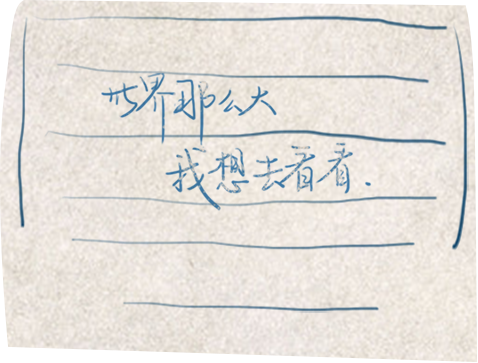 世界那么大
我想去看看.